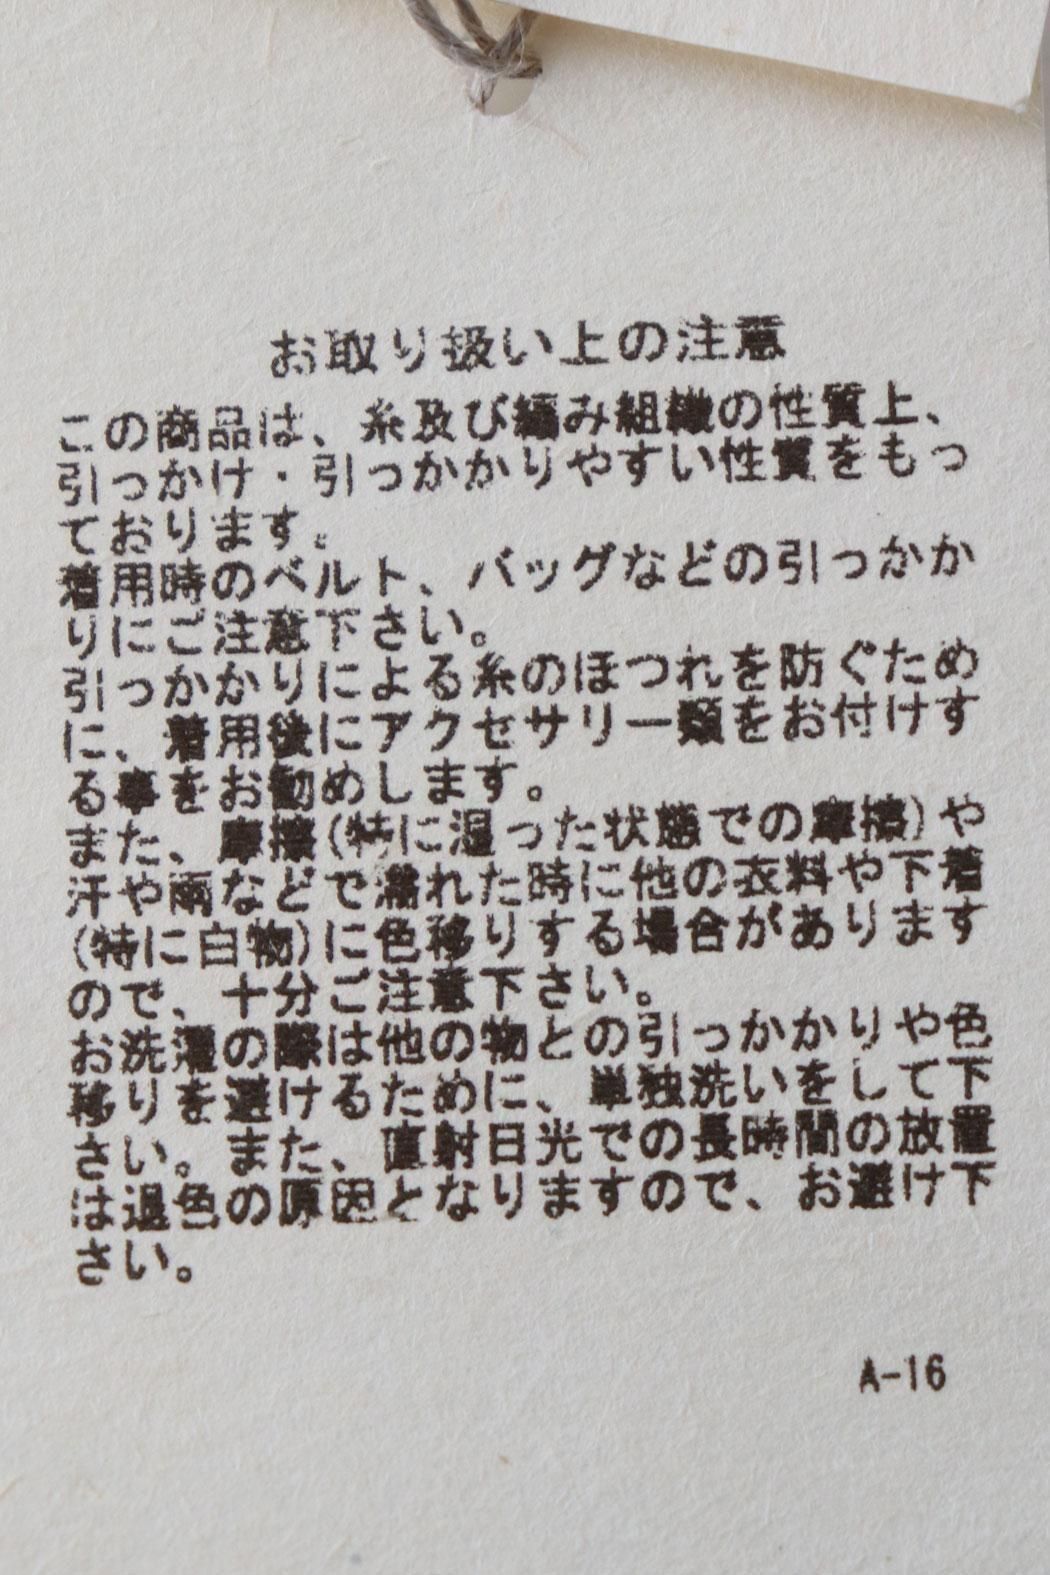 お取り扱い上の注意
この商品は、糸及び編み組織の性質上、
引っかけ・引っかかりやすい性質をもっ
ております。
着用時のベルト、バッグなどの引っかか
りにご注意下さい。
引っかかりによる糸のほつれを防ぐため
に、着用後にアクセサリー類をお付けす
る事をお勧めします。
また、摩擦(特に湿った状態での摩擦)や
汗や雨などで濡れた時に他の衣料や下着
(特に白物)に色移りする場合があります
ので、十分ご注意下さい。
お洗濯の際は他の物との引っかかりや色
移りを避けるために、単独洗いをして下
さい。また、直射日光での長時間の放置
は退色の原因となりますので、お避け下
さい。
A-16